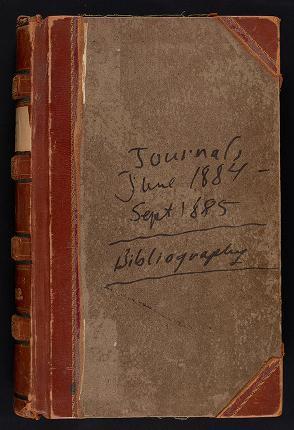 Journals
June 1884 -
Sept 1885
Bibliography